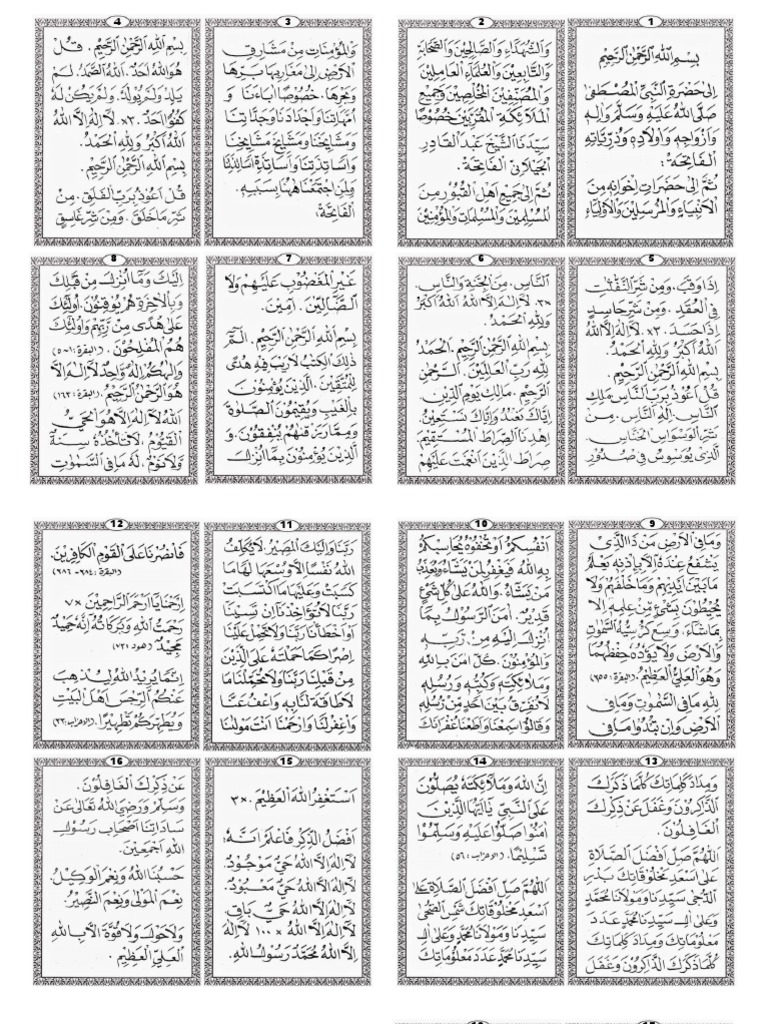 1
بِسْمِ اللهِ الرَّحْمٰنِ الرَّحِيْمِ
اِلٰى حَضْرَةِ النَّبِيِّ الْمُصْطَفٰى
صَلَّى اللهُ عَلَيْهِ وَسَلَّمَ وَاٰلِهِ
وَاَزْوَاجِهِ وَاَوْلَادِهِ وَذُرِّيَّاتِهِ
الْفَاتِحَةُ :
ثُمَّ اِلٰى حَضَرَاتِ اِخْوَانِهِ مِنَ
الْاَنْبِيَاءِ وَالْمُرْسَلِيْنَ وَالْاَوْلِيَاءِ
2
وَالشُّهَدَاءِ وَالصَّالِحِيْنَ وَالصَّحَابَةِ
وَالتَّابِعِيْنَ وَالْعُلَمَاءِ الْعَامِلِيْنَ
وَالْمُصَنِّفِيْنَ الْمُخْلِصِيْنَ وَجَمِيْعِ
الْمَلَائِكَةِ الْمُقَرَّبِيْنَ خُصُوْصًا
سَيِّدِنَا الشَّيْخِ عَبْدِ الْقَادِرِ
الْجَيْلَانِى الْفَاتِحَةُ .
ثُمَّ اِلٰى جَمِيْعِ اَهْلِ الْقُبُوْرِ مِنَ
الْمُسْلِمِيْنَ وَالْمُسْلِمَاتِ وَالْمُؤْمِنِيْنَ
3
وَالْمُؤْمِنَاتِ مِنْ مَشَارِقِ
الْاَرْضِ اِلٰى مَغَارِبِهَا بَرِّهَا
وَبَحْرِهَا . خُصُوْصًا اٰبَاءَنَا وَ
اُمَّهَاتِنَا وَاَجْدَادَنَا وَجَدَّاتِنَا
وَمَشَايِخَنَا وَمَشَايِخَ مَشَايِخِنَا
وَاَسَاتِذَتِنَا وَاَسَاتِذَةِ اَسَاتِذَتِنَا
وَلِمَنِ اجْتَمَعْنَا هٰهُنَا بِسَبَبِهِ .
الْفَاتِحَةُ :
4
بِسْمِ اللهِ الرَّحْمٰنِ الرَّحِيْمِ . قُلْ
هُوَ اللهُ اَحَدٌ . اَللهُ الصَّمَدُ . لَمْ
يَلِدْ وَلَمْ يُوْلَدْ . وَلَمْ يَكُنْ لَهُ
كُفُوًا اَحَدٌ . ×٣ لَااِلٰهَ اِلَّا اللهُ
اَللهُ اَكْبَرُ وَلِلّٰهِ الْحَمْدُ .
بِسْمِ اللهِ الرَّحْمٰنِ الرَّحِيْمِ .
قُلْ اَعُوْذُ بِرَبِّ الْفَلَقِ . مِنْ
شَرِّ مَاخَلَقَ . وَمِنْ شَرِّ غَاسِقٍ
5
اِذَا وَقَبَ . وَمِنْ شَرِّ النَّفّٰثٰتِ
فِى الْعُقَدِ . وَمِنْ شَرِّ حَاسِدٍ
اِذَا حَسَدَ . ×٣ لَااِلٰهَ اِلَّا اللهُ
اَللهُ اَكْبَرُ وَلِلّٰهِ الْحَمْدُ .
بِسْمِ اللهِ الرَّحْمٰنِ الرَّحِيْمِ
قُلْ اَعُوْذُ بِرَبِّ النَّاسِ مَلِكِ
النَّاسِ . اِلٰهِ النَّاسِ . مِنْ
شَرِّ الْوَسْوَاسِ الْخَنَّاسِ .
الَّذِيْ يُوَسْوِسُ فِيْ صُدُوْرِ
6
النَّاسِ . مِنَ الْجِنَّةِ وَالنَّاسِ .
×٣ . لَااِلٰهَ اِلَّا اللهُ اَللهُ اَكْبَرُ
وَلِلّٰهِ الْحَمْدُ .
بِسْمِ اللهِ الرَّحْمٰنِ الرَّحِيْمِ . اَلْحَمْدُ
لِلّٰهِ رَبِّ الْعٰلَمِيْنَ . الرَّحْمٰنِ
الرَّحِيْمِ . مَالِكِ يَوْمِ الدِّيْنِ .
اِيَّاكَ نَعْبُدُ وَاِيَّاكَ نَسْتَعِيْنُ .
اِهْدِنَا الصِّرَاطَ الْمُسْتَقِيْمَ
صِرَاطَ الَّذِيْنَ اَنْعَمْتَ عَلَيْهِمْ
7
غَيْرِ الْمَغْضُوْبِ عَلَيْهِمْ وَلَا
الضَّالِّيْنَ . اٰمِيْنَ .
بِسْمِ اللهِ الرَّحْمٰنِ الرَّحِيْمِ . الٓمّٓ
ذٰلِكَ الْكِتٰبُ لَارَيْبَ فِيْهِ هُدًى
لِلْمُتَّقِيْنَ . الَّذِيْنَ يُؤْمِنُوْنَ
بِالْغَيْبِ وَيُقِيْمُوْنَ الصَّلٰوةَ
وَمِمَّا رَزَقْنٰهُمْ يُنْفِقُوْنَ . وَ
الَّذِيْنَ يُؤْمِنُوْنَ بِمَا اُنْزِلَ
8
اِلَيْكَ وَمَا اُنْزِلَ مِنْ قَبْلِكَ
وَبِالْاٰخِرَةِ هُمْ يُوْقِنُوْنَ . اُولٰئِكَ
عَلٰى هُدًى مِنْ رَبِّهِمْ وَاُولٰئِكَ
هُمُ الْمُفْلِحُوْنَ . (البقرة : ١-٥)
وَاِلٰهُكُمْ اِلٰهٌ وَّاحِدٌ لَااِلٰهَ اِلَّا
هُوَ الرَّحْمٰنُ الرَّحِيْمُ . (البقرة : ١٦٣)
اَللهُ لَااِلٰهَ اِلَّا هُوَ الْحَيُّ
الْقَيُّوْمُ . لَا تَأْخُذُهُ سِنَةٌ
وَّلَا نَوْمٌ . لَهُ مَافِى السَّمٰوٰتِ
9
وَمَافِى الْاَرْضِ مَنْ ذَا الَّذِيْ
يَشْفَعُ عِنْدَهُ اِلَّا بِاِذْنِهِ يَعْلَمُ
مَابَيْنَ اَيْدِيْهِمْ وَمَاخَلْفَهُمْ وَلَا
يُحِيْطُوْنَ بِشَيْءٍ مِنْ عِلْمِهِ اِلَّا
بِمَاشَاءَ . وَسِعَ كُرْسِيُّهُ السَّمٰوٰتِ
وَالْاَرْضَ وَلَا يَؤُدُهُ حِفْظُهُمَا
وَهُوَ الْعَلِيُّ الْعَظِيْمُ . (البقرة : ٢٥٥)
لِلّٰهِ مَافِى السَّمٰوٰتِ وَمَافِى
الْاَرْضِ وَاِنْ تُبْدُوْا مَافِيْ
10
اَنْفُسِكُمْ اَوْ تُخْفُوْهُ يُحَاسِبْكُمْ
بِهِ اللهُ فَيَغْفِرُ لِمَنْ يَشَاءُ وَيُعَذِّبُ
مَنْ يَشَاءُ . وَاللهُ عَلٰى كُلِّ شَيْءٍ
قَدِيْرٌ . اٰمَنَ الرَّسُوْلُ بِمَا
اُنْزِلَ اِلَيْهِ مِنْ رَبِّهِ
وَالْمُؤْمِنُوْنَ . كُلٌّ اٰمَنَ بِاللهِ
وَمَلٰئِكَتِهِ وَكُتُبِهِ وَرُسُلِهِ
لَا نُفَرِّقُ بَيْنَ اَحَدٍ مِنْ رُسُلِهِ
وَقَالُوْا سَمِعْنَا وَاَطَعْنَا غُفْرَانَكَ
11
رَبَّنَا وَاِلَيْكَ الْمَصِيْرُ . لَا يُكَلِّفُ
اللهُ نَفْسًا اِلَّا وُسْعَهَا لَهَا مَا
كَسَبَتْ وَعَلَيْهَا مَااكْتَسَبَتْ
رَبَّنَا لَا تُؤَاخِذْنَا اِنْ نَسِيْنَا
اَوْ اَخْطَأْنَا رَبَّنَا وَلَا تَحْمِلْ عَلَيْنَا
اِصْرًا كَمَا حَمَلْتَهُ عَلَى الَّذِيْنَ
مِنْ قَبْلِنَا رَبَّنَا وَلَا تُحَمِّلْنَا مَا
لَاطَاقَةَ لَنَا بِهِ وَاعْفُ عَنَّا
وَاغْفِرْلَنَا وَارْحَمْنَا اَنْتَ مَوْلٰنَا
12
فَانْصُرْنَا عَلَى الْقَوْمِ الْكَافِرِيْنَ .
(البقرة : ٢٨٤-٢٨٦)
اِرْحَمْنَا يَااَرْحَمَ الرَّاحِمِيْنَ ×٧
رَحْمَتُ اللهِ وَبَرَكَاتُهُ اِنَّهُ حَمِيْدٌ
مَجِيْدٌ . (هود : ٧٣)
اِنَّمَا يُرِيْدُ اللهُ لِيُذْهِبَ
عَنْكُمُ الرِّجْسَ اَهْلَ الْبَيْتِ
وَيُطَهِّرَكُمْ تَطْهِيْرًا . (الاحزاب : ٣٣)
13
وَمِدَادَ كَلِمَاتِكَ كُلَّمَا ذَكَرَكَ
الذَّاكِرُوْنَ وَغَفَلَ عَنْ ذِكْرِكَ
الْغَافِلُوْنَ .
اَللّٰهُمَّ صَلِّ اَفْضَلَ الصَّلَاةِ
عَلٰى اَسْعَدِ مَخْلُوْقَاتِكَ بَدْرِ
الدُّجٰى سَيِّدِنَا وَمَوْلَانَا مُحَمَّدٍ
وَعَلٰى اٰلِ سَيِّدِنَا مُحَمَّدٍ عَدَدَ
مَعْلُوْمَاتِكَ وَمِدَادَ كَلِمَاتِكَ
كُلَّمَا ذَكَرَكَ الذَّاكِرُوْنَ وَغَفَلَ
14
اِنَّ اللهَ وَمَلٰئِكَتَهُ يُصَلُّوْنَ
عَلَى النَّبِيِّ يٰاَيُّهَا الَّذِيْنَ
اٰمَنُوْا صَلُّوْا عَلَيْهِ وَسَلِّمُوْا
تَسْلِيْمًا . (الاحزاب : ٥٦)
اَللّٰهُمَّ صَلِّ اَفْضَلَ الصَّلَاةِ عَلٰى
اَسْعَدِ مَخْلُوْقَاتِكَ شَمْسِ الضُّحٰى
سَيِّدِنَا وَمَوْلَانَا مُحَمَّدٍ وَعَلٰى اٰلِ
سَيِّدِنَا مُحَمَّدٍ عَدَدَ مَعْلُوْمَاتِكَ
15
اَسْتَغْفِرُ اللهَ الْعَظِيْمَ . ×٣
اَفْضَلُ الذِّكْرِ فَاعْلَمْ اَنَّهُ :
لَااِلٰهَ اِلَّا اللهُ حَيٌّ مَوْجُوْدٌ .
لَااِلٰهَ اِلَّا اللهُ حَيٌّ مَعْبُوْدٌ .
لَااِلٰهَ اِلَّا اللهُ حَيٌّ بَاقٍ .
لَااِلٰهَ اِلَّا اللهُ × ١٠٠ لَااِلٰهَ
اِلَّا اللهُ مُحَمَّدٌ رَسُوْلُ اللهِ .
16
عَنْ ذِكْرِكَ الْغَافِلُوْنَ .
وَسَلِّمْ وَرَضِيَ اللهُ تَعَالٰى عَنْ
سَادَاتِنَا اَصْحَابِ رَسُوْلِ
اللهِ اَجْمَعِيْنَ .
حَسْبُنَا اللهُ وَنِعْمَ الْوَكِيْلُ .
نِعْمَ الْمَوْلٰى وَنِعْمَ النَّصِيْرُ .
وَلَاحَوْلَ وَلَا قُوَّةَ اِلَّا بِاللهِ
الْعَلِيِّ الْعَظِيْمِ .